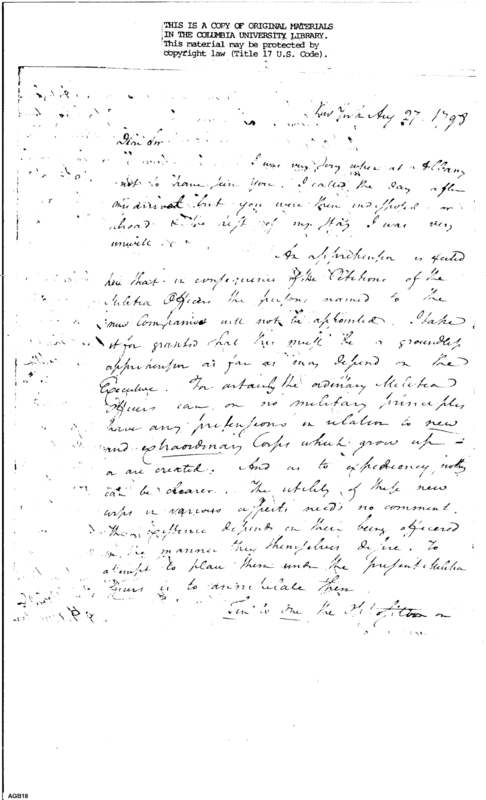 THIS IS A COPY OF ORIGINAL MATERIALS
IN THE COLUMBIA UNIVERSITY LIBRARY.
This material may be protected by
copyright law (Title 17 U.S. Code).
New York Aug 27 1798
Dear Sir
I was very sorry when at Albany
not to have seen you. I called the day after
my arrival but you were then indisposed or
abroad & the rest of my stay I was very
unwell
An apprehension is excited
here that in consequence of the Petitions of the
Militia Officers the persons named to the
new Companies will not be appointed. I take
it for granted that this must be a groundless
apprehension as far as may depend on the
Executive. For certainly the ordinary Militia
Officers can on no military principles
have any pretensions in relation to new
and extraordinary Corps which grow up
or are created. And as to expediency, nothing
can be clearer. The utility of these new
corps in various aspects needs no comment.
Their existence depends on their being officered
in the manner they themselves desire. To
attempt to place them under the present Militia
Officers is to annihilate them
Ten to One the on
AGB18